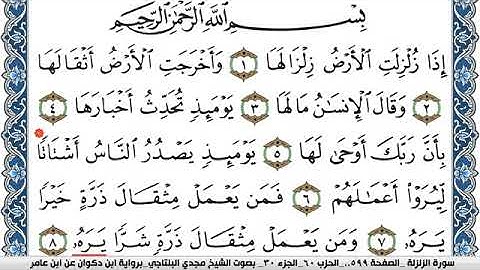 بِسْمِ ٱللَّهِ ٱلرَّحْمَٰنِ ٱلرَّحِيمِ
إِذَا زُلْزِلَتِ ٱلْأَرْضُ زِلْزَالَهَا ١ وَأَخْرَجَتِ ٱلْأَرْضُ أَثْقَالَهَا
٢ وَقَالَ ٱلْإِنسَٰنُ مَا لَهَا ٣ يَوْمَئِذٍ تُحَدِّثُ أَخْبَارَهَا ٤
بِأَنَّ رَبَّكَ أَوْحَىٰ لَهَا ٥ يَوْمَئِذٍ يَصْدُرُ ٱلنَّاسُ أَشْتَاتًا
لِّيُرَوْا۟ أَعْمَٰلَهُمْ ٦ فَمَن يَعْمَلْ مِثْقَالَ ذَرَّةٍ خَيْرًا
يَرَهُۥ ٧ وَمَن يَعْمَلْ مِثْقَالَ ذَرَّةٍ شَرًّا يَرَهُۥ ٨
سورة الزلزلة _ الصفحة ٥٩٩.. الحزب ٦٠_ الجزء ٣٠_ بصوت الشيخ مجدي البلتاجي_برواية ابن ذكوان عن ابن عامر